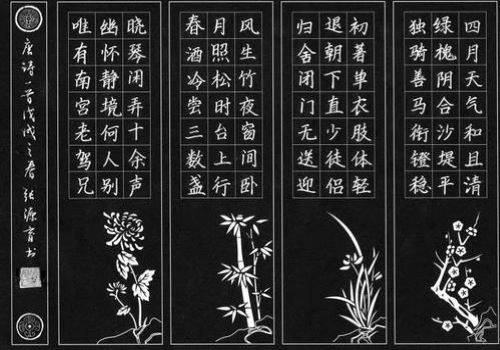 四月天气和且清
绿槐阴合沙堤平
独骑善马衔镫稳
初著单衣肢体轻
退朝下直少徒侣
归舍闭门无送迎
风生竹夜窗间卧
月照松时台上行
春酒冷尝三数盏
晓琴闲弄十余声
幽怀静境何人别
唯有南宫老驾兄
唐诗一首戊戌之春 张源育书